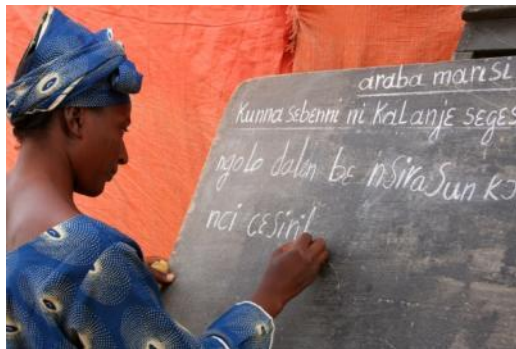 araba marisi
Kunnasebenni ni kalanje seges
ngolo dalen bɛ nsirasun kɔ
nci cɛsiri